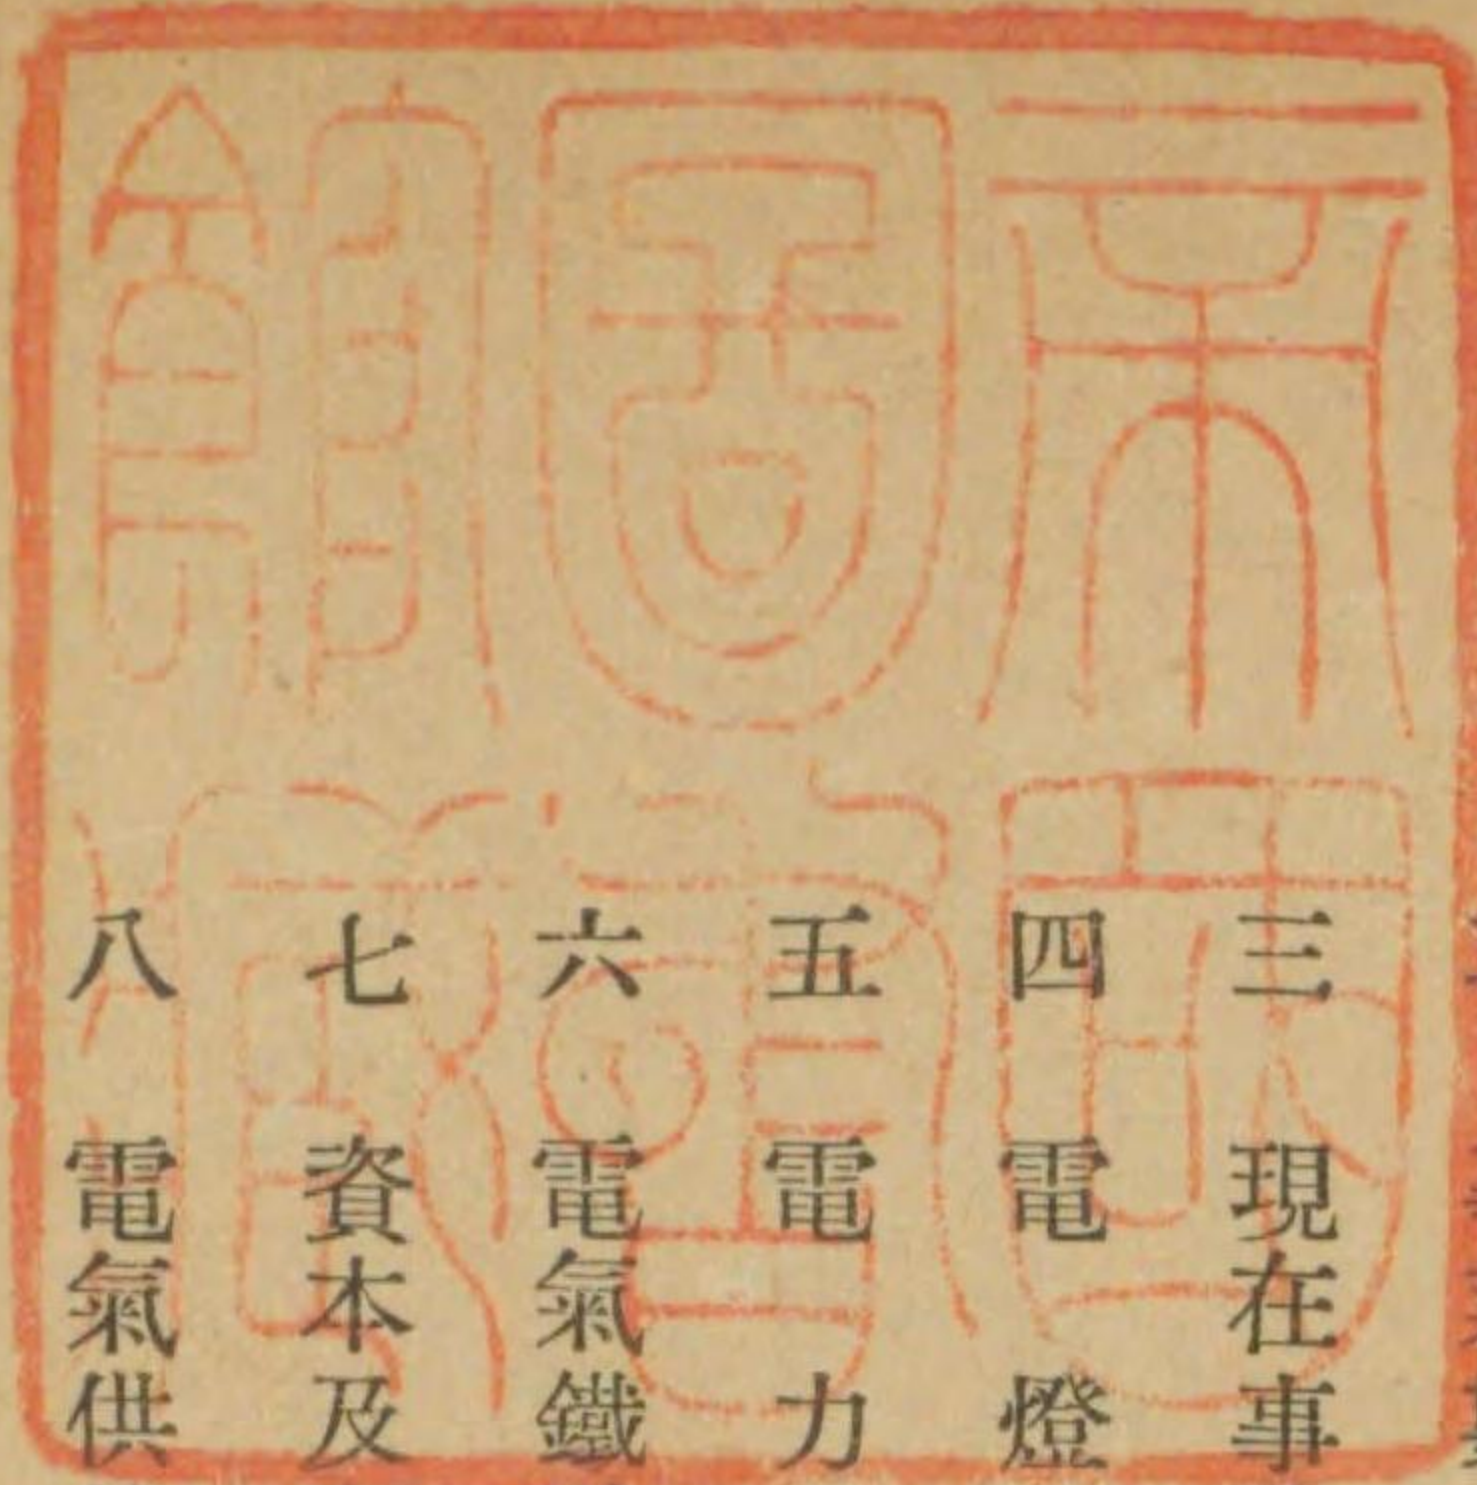 帝國
圖書
館藏
三 現在事
四 電燈
五 電力
六 電氣鐵
七 資本及
八 電氣供